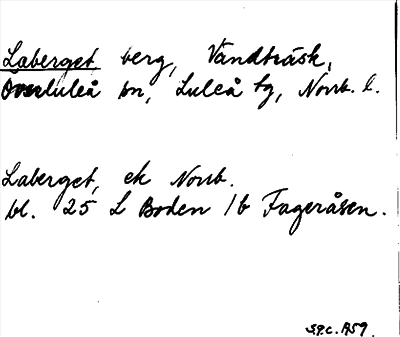 Laberget, berg, Vändträsk,
Överluleå sn, Luleå tg, Norrb. l.
Laberget, ek Norrb.
bl. 25 L Boden 1b Fageråsen.
S.P.C. 1959.